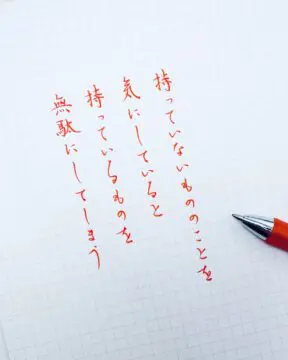 持っていないもののことを
気にしていると
持っているものを
無駄にしてしまう